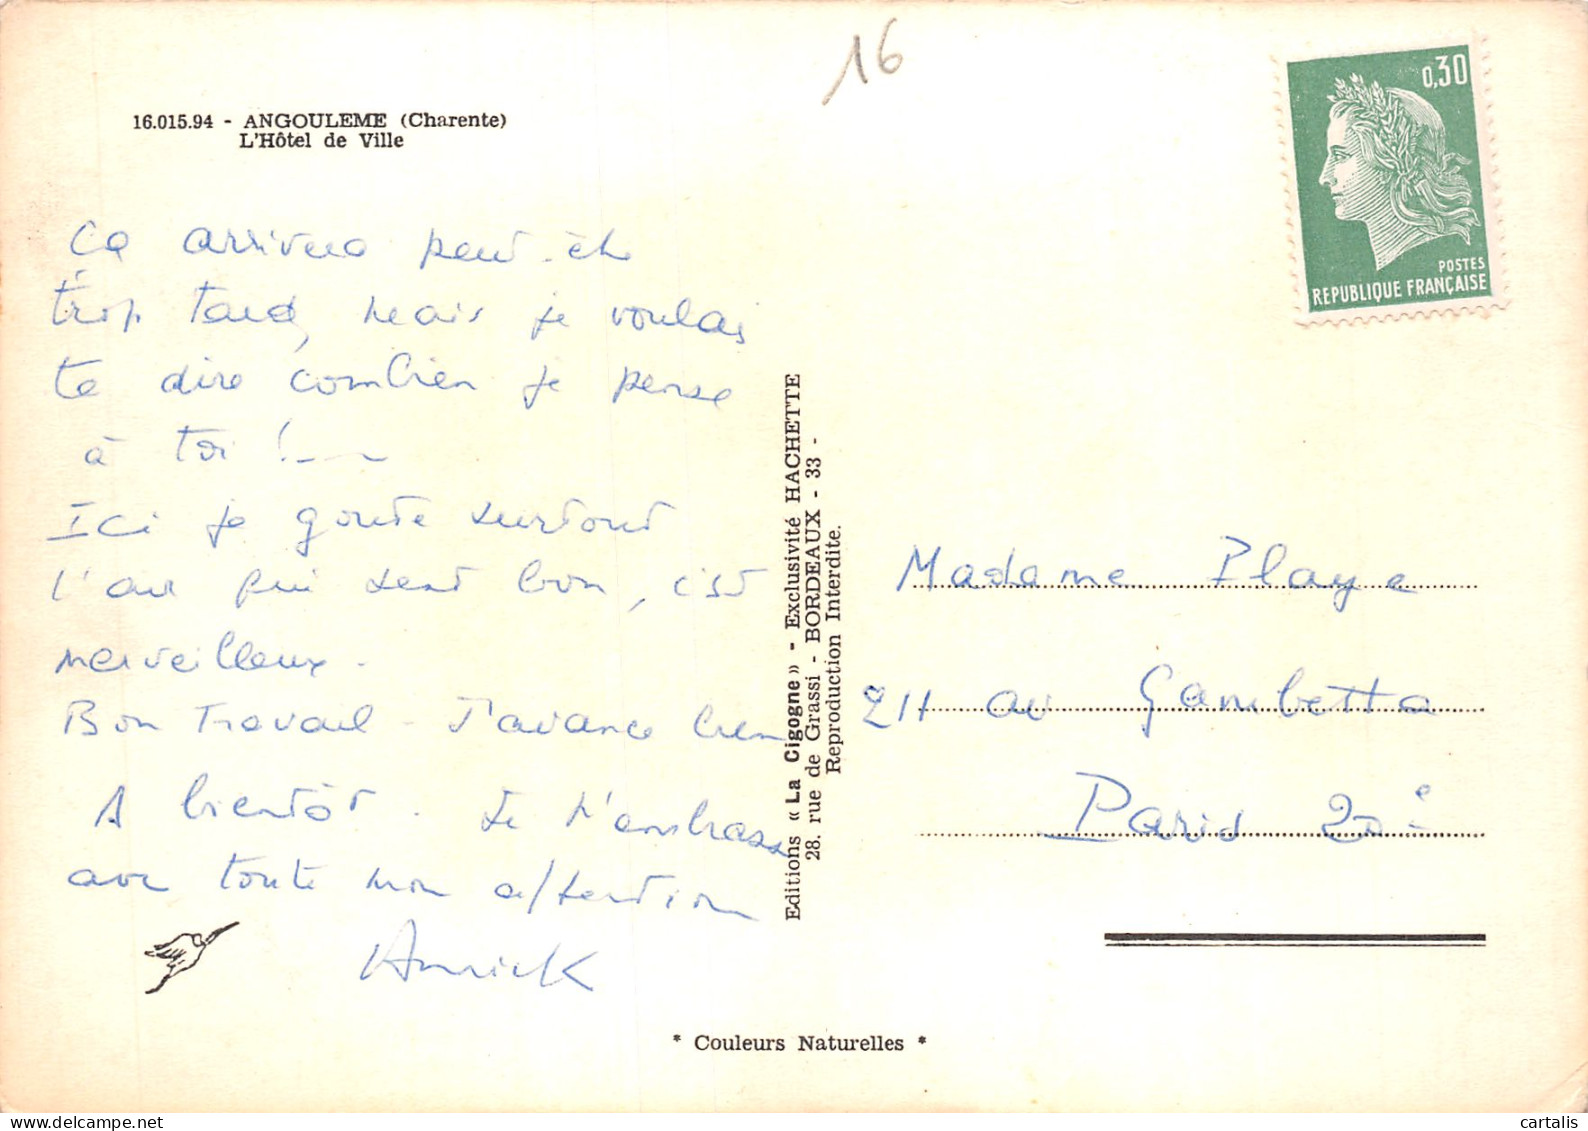 16
16.015.94 - ANGOULEME (Charente)
L'Hôtel de Ville
0,30
POSTES
REPUBLIQUE FRANÇAISE
Ça arrivera peut-être
trop tard, mais je voulais
te dire combien je pense
à toi !
Ici je goute surtout
l'air qui sent bon, c'est
merveilleux.
Bon Travail - J'avance bien
A bientôt. Je t'embrasse
avec toute mon attention
Annick
Editions « La Cigogne » - Exclusivité HACHETTE
28. rue de Grassi - BORDEAUX - 33 -
Reproduction Interdite.
Madame Playe
211 av Gambetta
Paris 20e
* Couleurs Naturelles *
cartalis